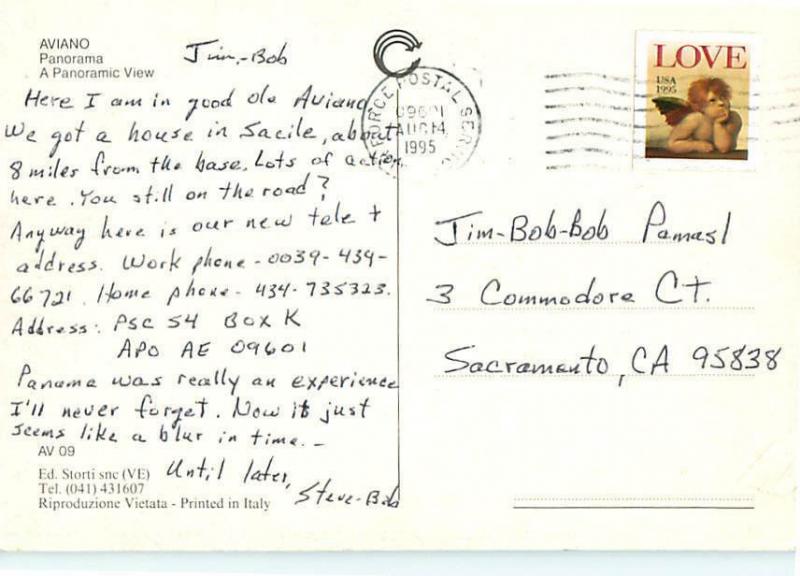 AVIANO
Panorama
A Panoramic View
Jim-Bob
Here I am in good ole Aviano
We got a house in Sacile, about
8 miles from the base. Lots of action
here. You still on the road?
Anyway here is our new tele +
address. Work phone - 0039-434-
66721. Home phone - 434-735323.
Address: PSC 54 BOX K
APO AE 09601
Panama was really an experience
I'll never forget. Now it just
seems like a blur in time. -
Until later,
Steve-Bob
AV 09
Ed. Storti snc (VE)
Tel. (041) 431607
Riproduzione Vietata - Printed in Italy
FORCE POSTAL SERV
09601
AUG 14
1995
LOVE
USA
1995
Jim-Bob-Bob
3 Commodore CT.
Sacramento, CA 95838